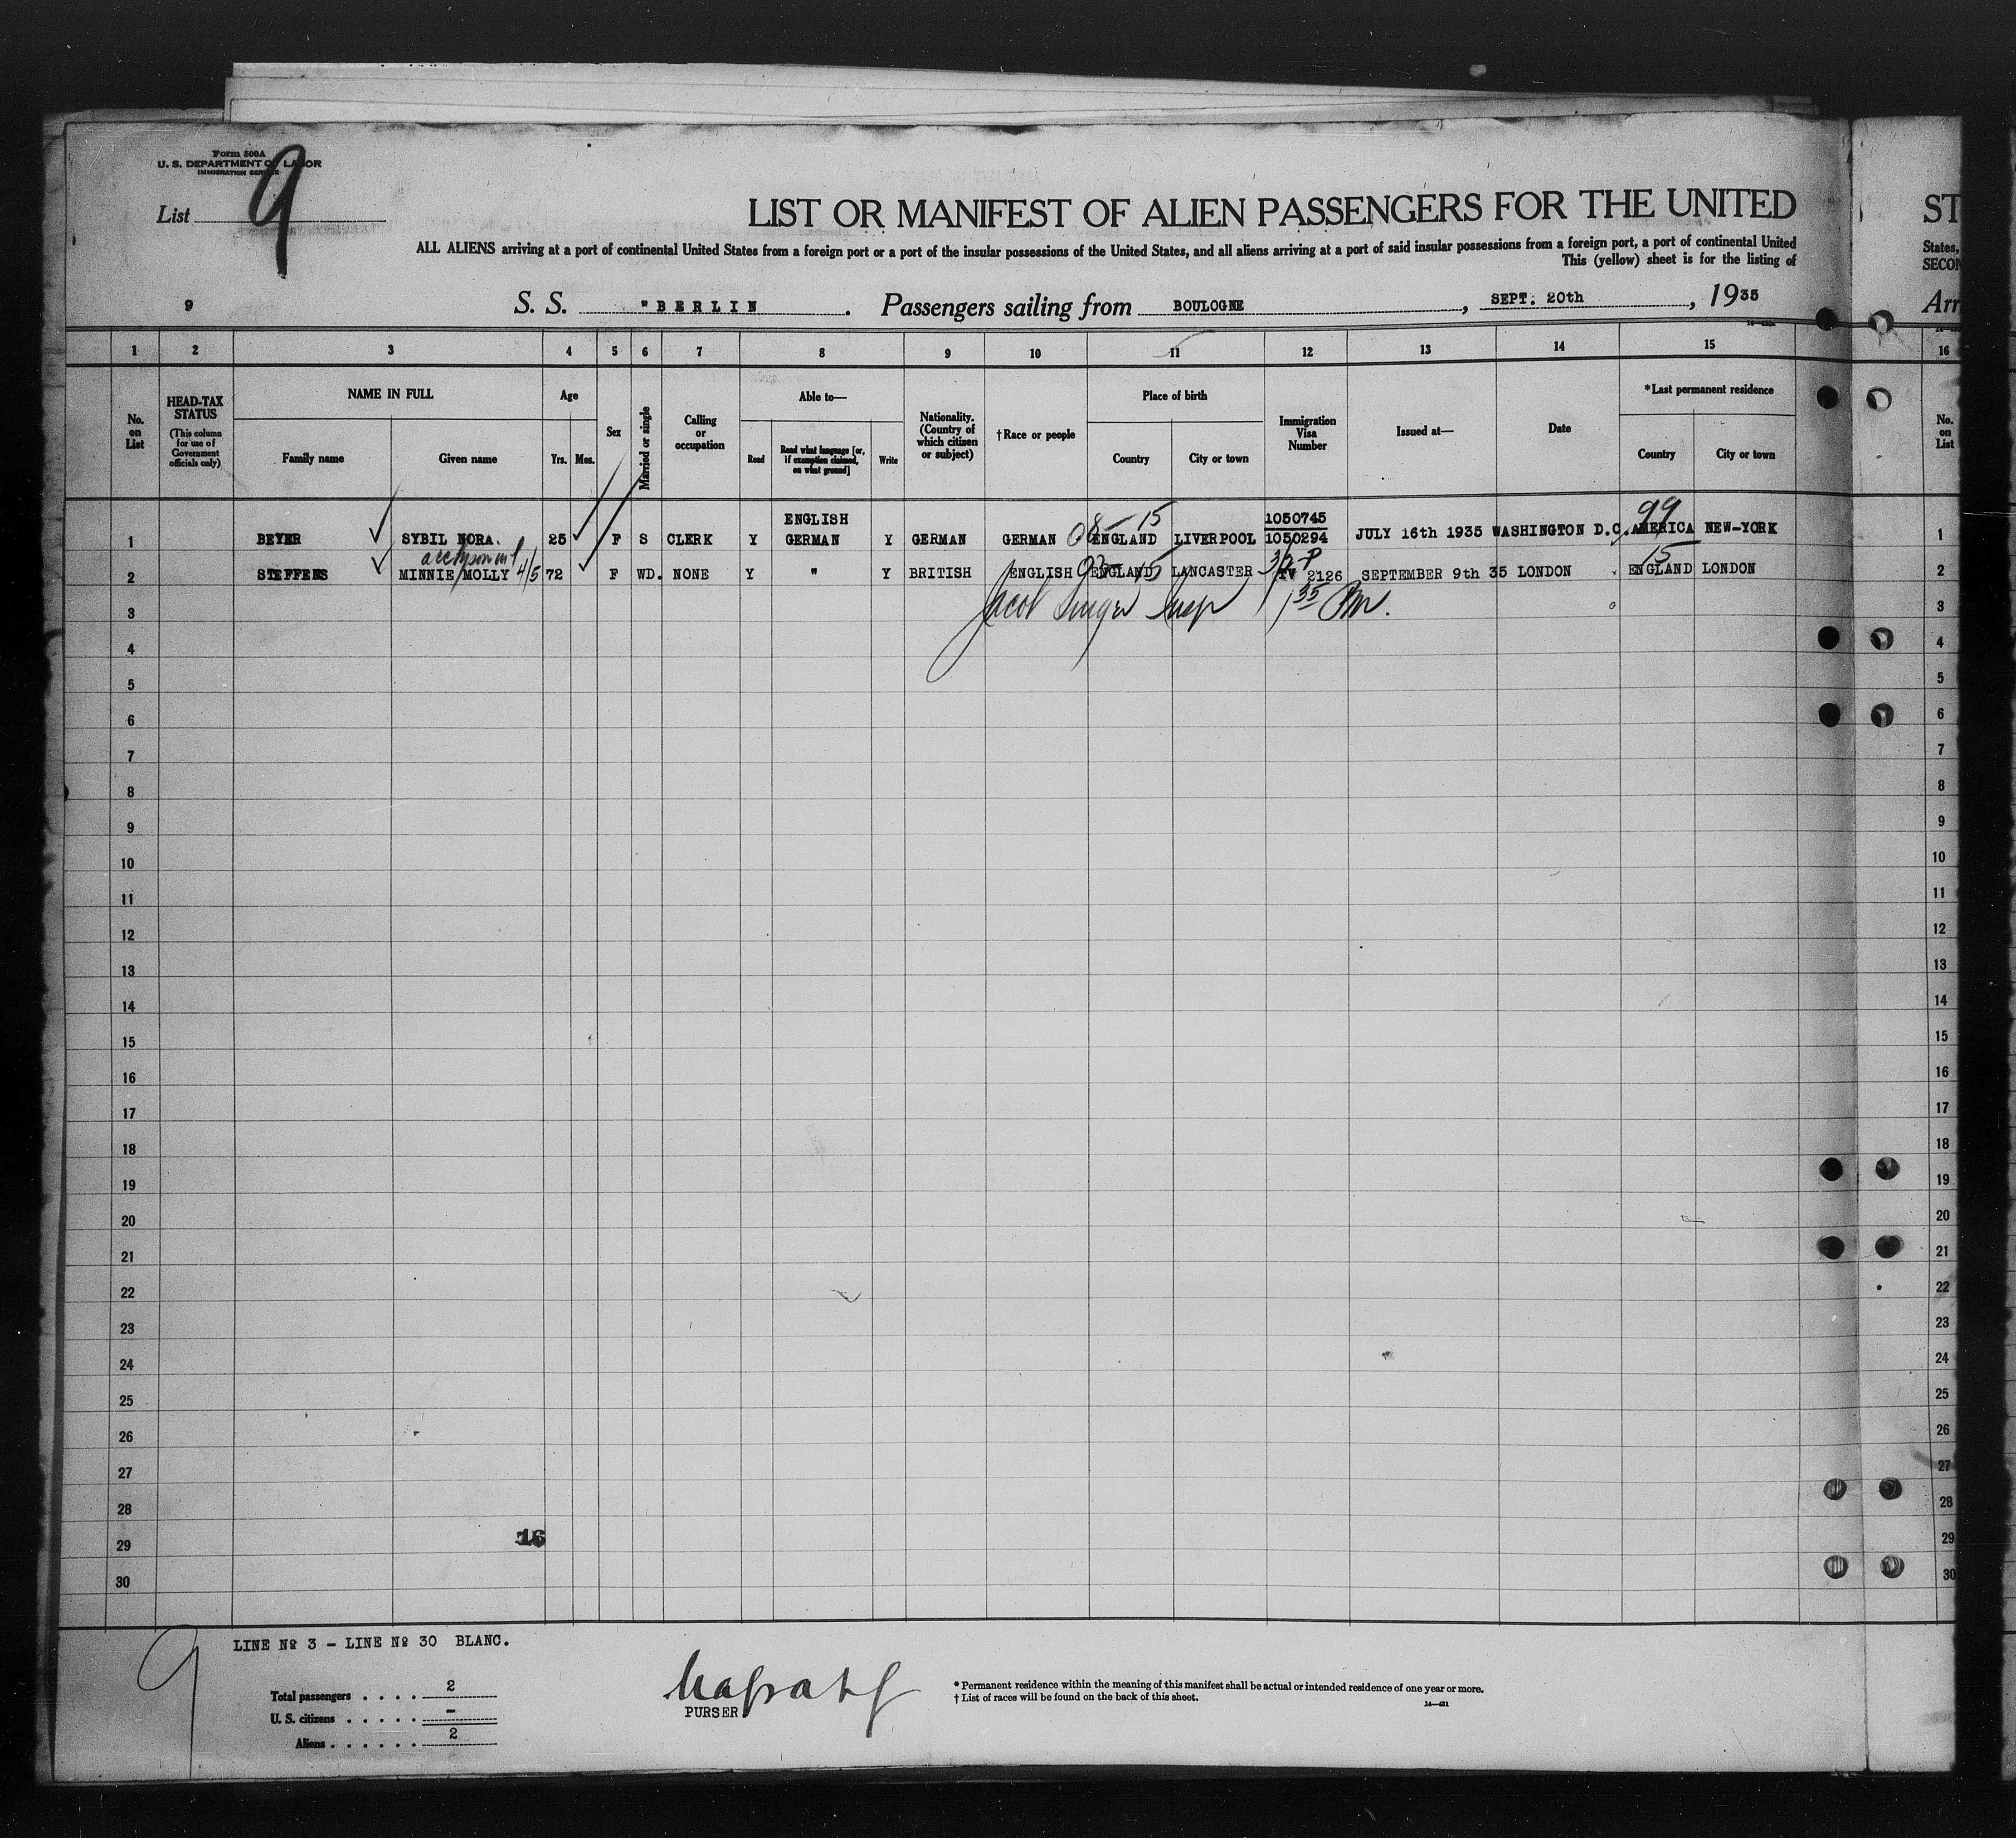 Form 500A
U. S. DEPARTMENT OF LABOR
IMMIGRATION SERVICE
List 9
LIST OR MANIFEST OF ALIEN PASSENGERS FOR THE UNITED
ST
ALL ALIENS arriving at a port of continental United States from a foreign port or a port of the insular possessions of the United States, and all aliens arriving at a port of said insular possessions from a foreign port, a port of continental United
States,
This (yellow) sheet is for the listing of
SECON
9
S. S. "BERLIN . Passengers sailing from BOULOGNE , SEPT. 20th , 1935
Arr
1 2 3 4 5 6 7 8 9 10 11 12 13 14 15 16
No. on List
HEAD-TAX STATUS
(This column for use of Government officials only)
NAME IN FULL
Family name
Given name
Age
Yrs. Mos.
Sex
Married or single
Calling or occupation
Able to—
Read
Read what language [or, if exemption claimed, on what ground]
Write
Nationality. (Country of which citizen or subject)
†Race or people
Place of birth
Country
City or town
Immigration Visa Number
Issued at—
Date
*Last permanent residence
Country
City or town
No. on List
ENGLISH 08-15 1050745 99
1 BEYER SYBIL NORA. 25 F S CLERK Y GERMAN Y GERMAN GERMAN ENGLAND LIVERPOOL 1050294 JULY 16th 1935 WASHINGTON D.C. AMERICA NEW-YORK 1
15
2 STEFFENS MINNIE/MOLLY 4/5 72 F WD. NONE Y " Y BRITISH ENGLISH ENGLAND LANCASTER 2126 SEPTEMBER 9th 35 LONDON ENGLAND LONDON 2
3 Jacob 1 35 PM. 3
4 4
5 5
6 6
7 7
8 8
9 9
10 10
11 11
12 12
13 13
14 14
15 15
16 16
17 17
18 18
19 19
20 20
21 21
22 22
23 23
24 24
25 25
26 26
27 27
28 28
29 16 29
30 30
9
LINE No 3 - LINE No 30 BLANC.
Total passengers . . . . 2
U. S. citizens . . . . . -
Aliens . . . . . . 2
PURSER
* Permanent residence within the meaning of this manifest shall be actual or intended residence of one year or more.
† List of races will be found on the back of this sheet.